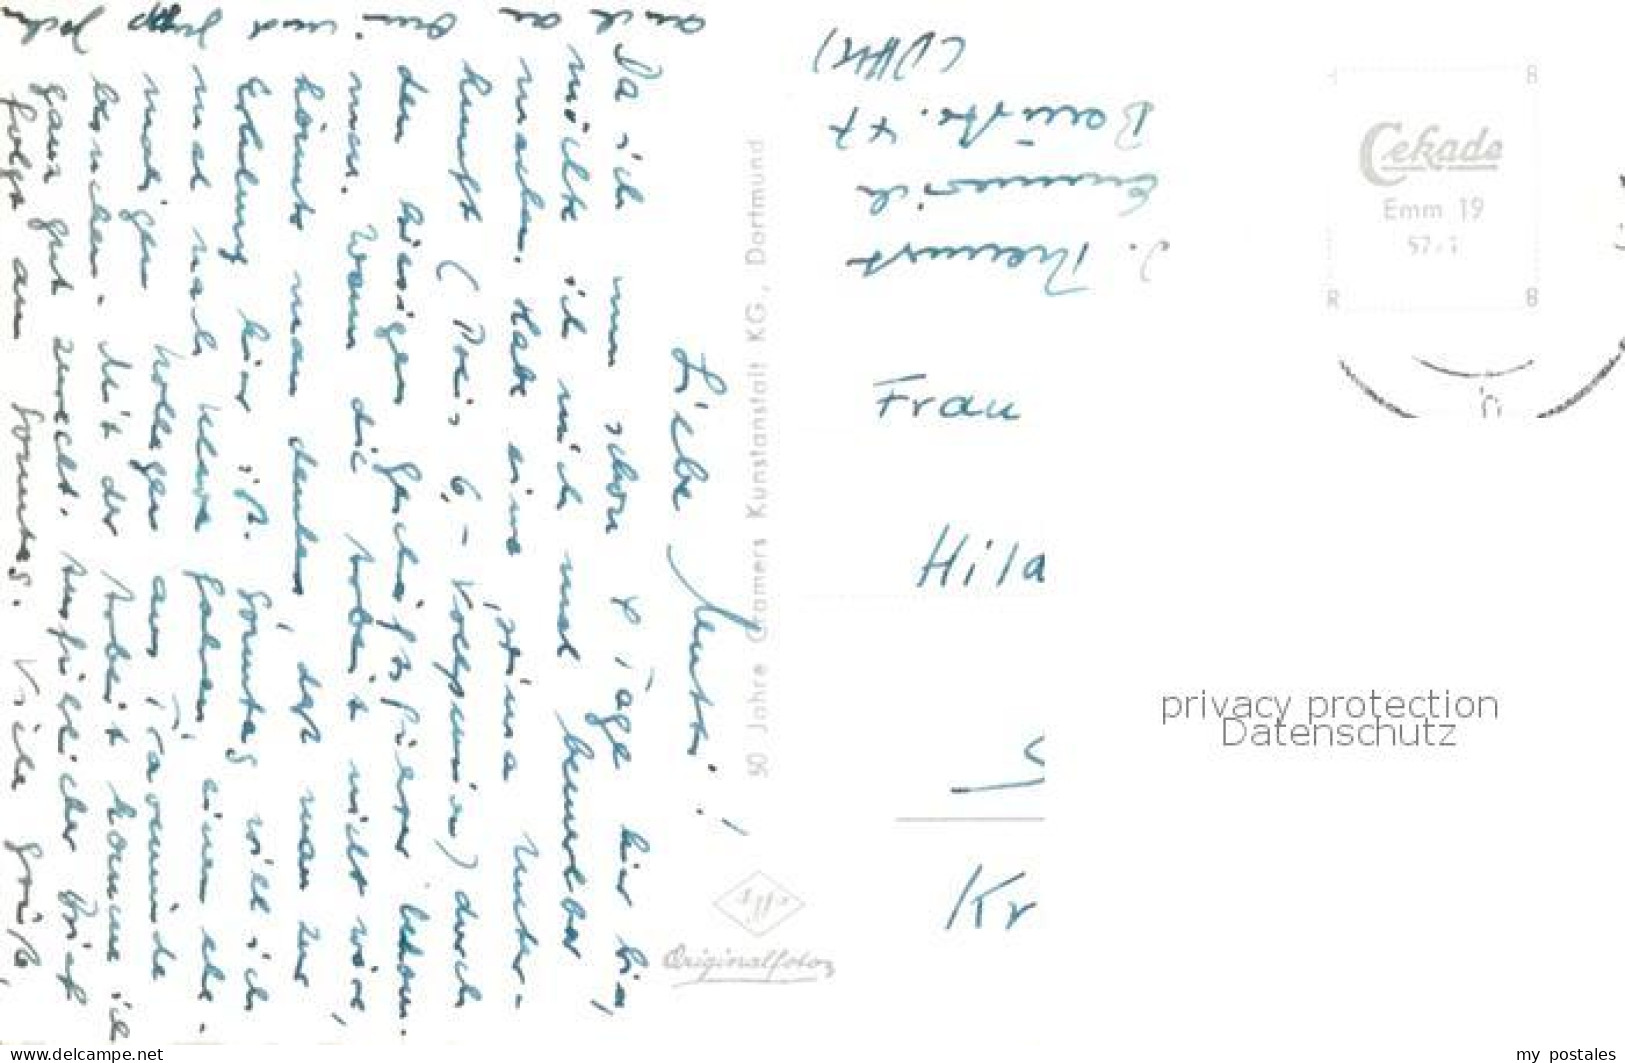 Liebe Mutti!
Da ich nun schon 8 Tage hier bin,
möchte ich mich mal bemerkbar
machen. Habe eine prima Unter-
kunft (Preis 6,- Vollpension) durch
den hiesigen Geschäftsführer bekom-
men. Wenn die Arbeit nicht wäre,
könnte man denken, daß man zur
Erholung hier ist. Sonntag will ich
mal nach Kleve fahren, einen ehe-
maligen Kollegen aus Travemünde
besuchen. Mit der Arbeit komme ich
ganz gut zurecht. Ausführlicher Brief
folgt am Sonntag. Viele Grüße,
auch an Omi und
50 Jahre Cramers Kunstanstalt KG., Dortmund
Originalfoto
J.
Emmerich
47
Frau
Hila
Kr
Cekade
Emm 19
privacy protection
Datenschutz
www.delcampe.net
my_postales